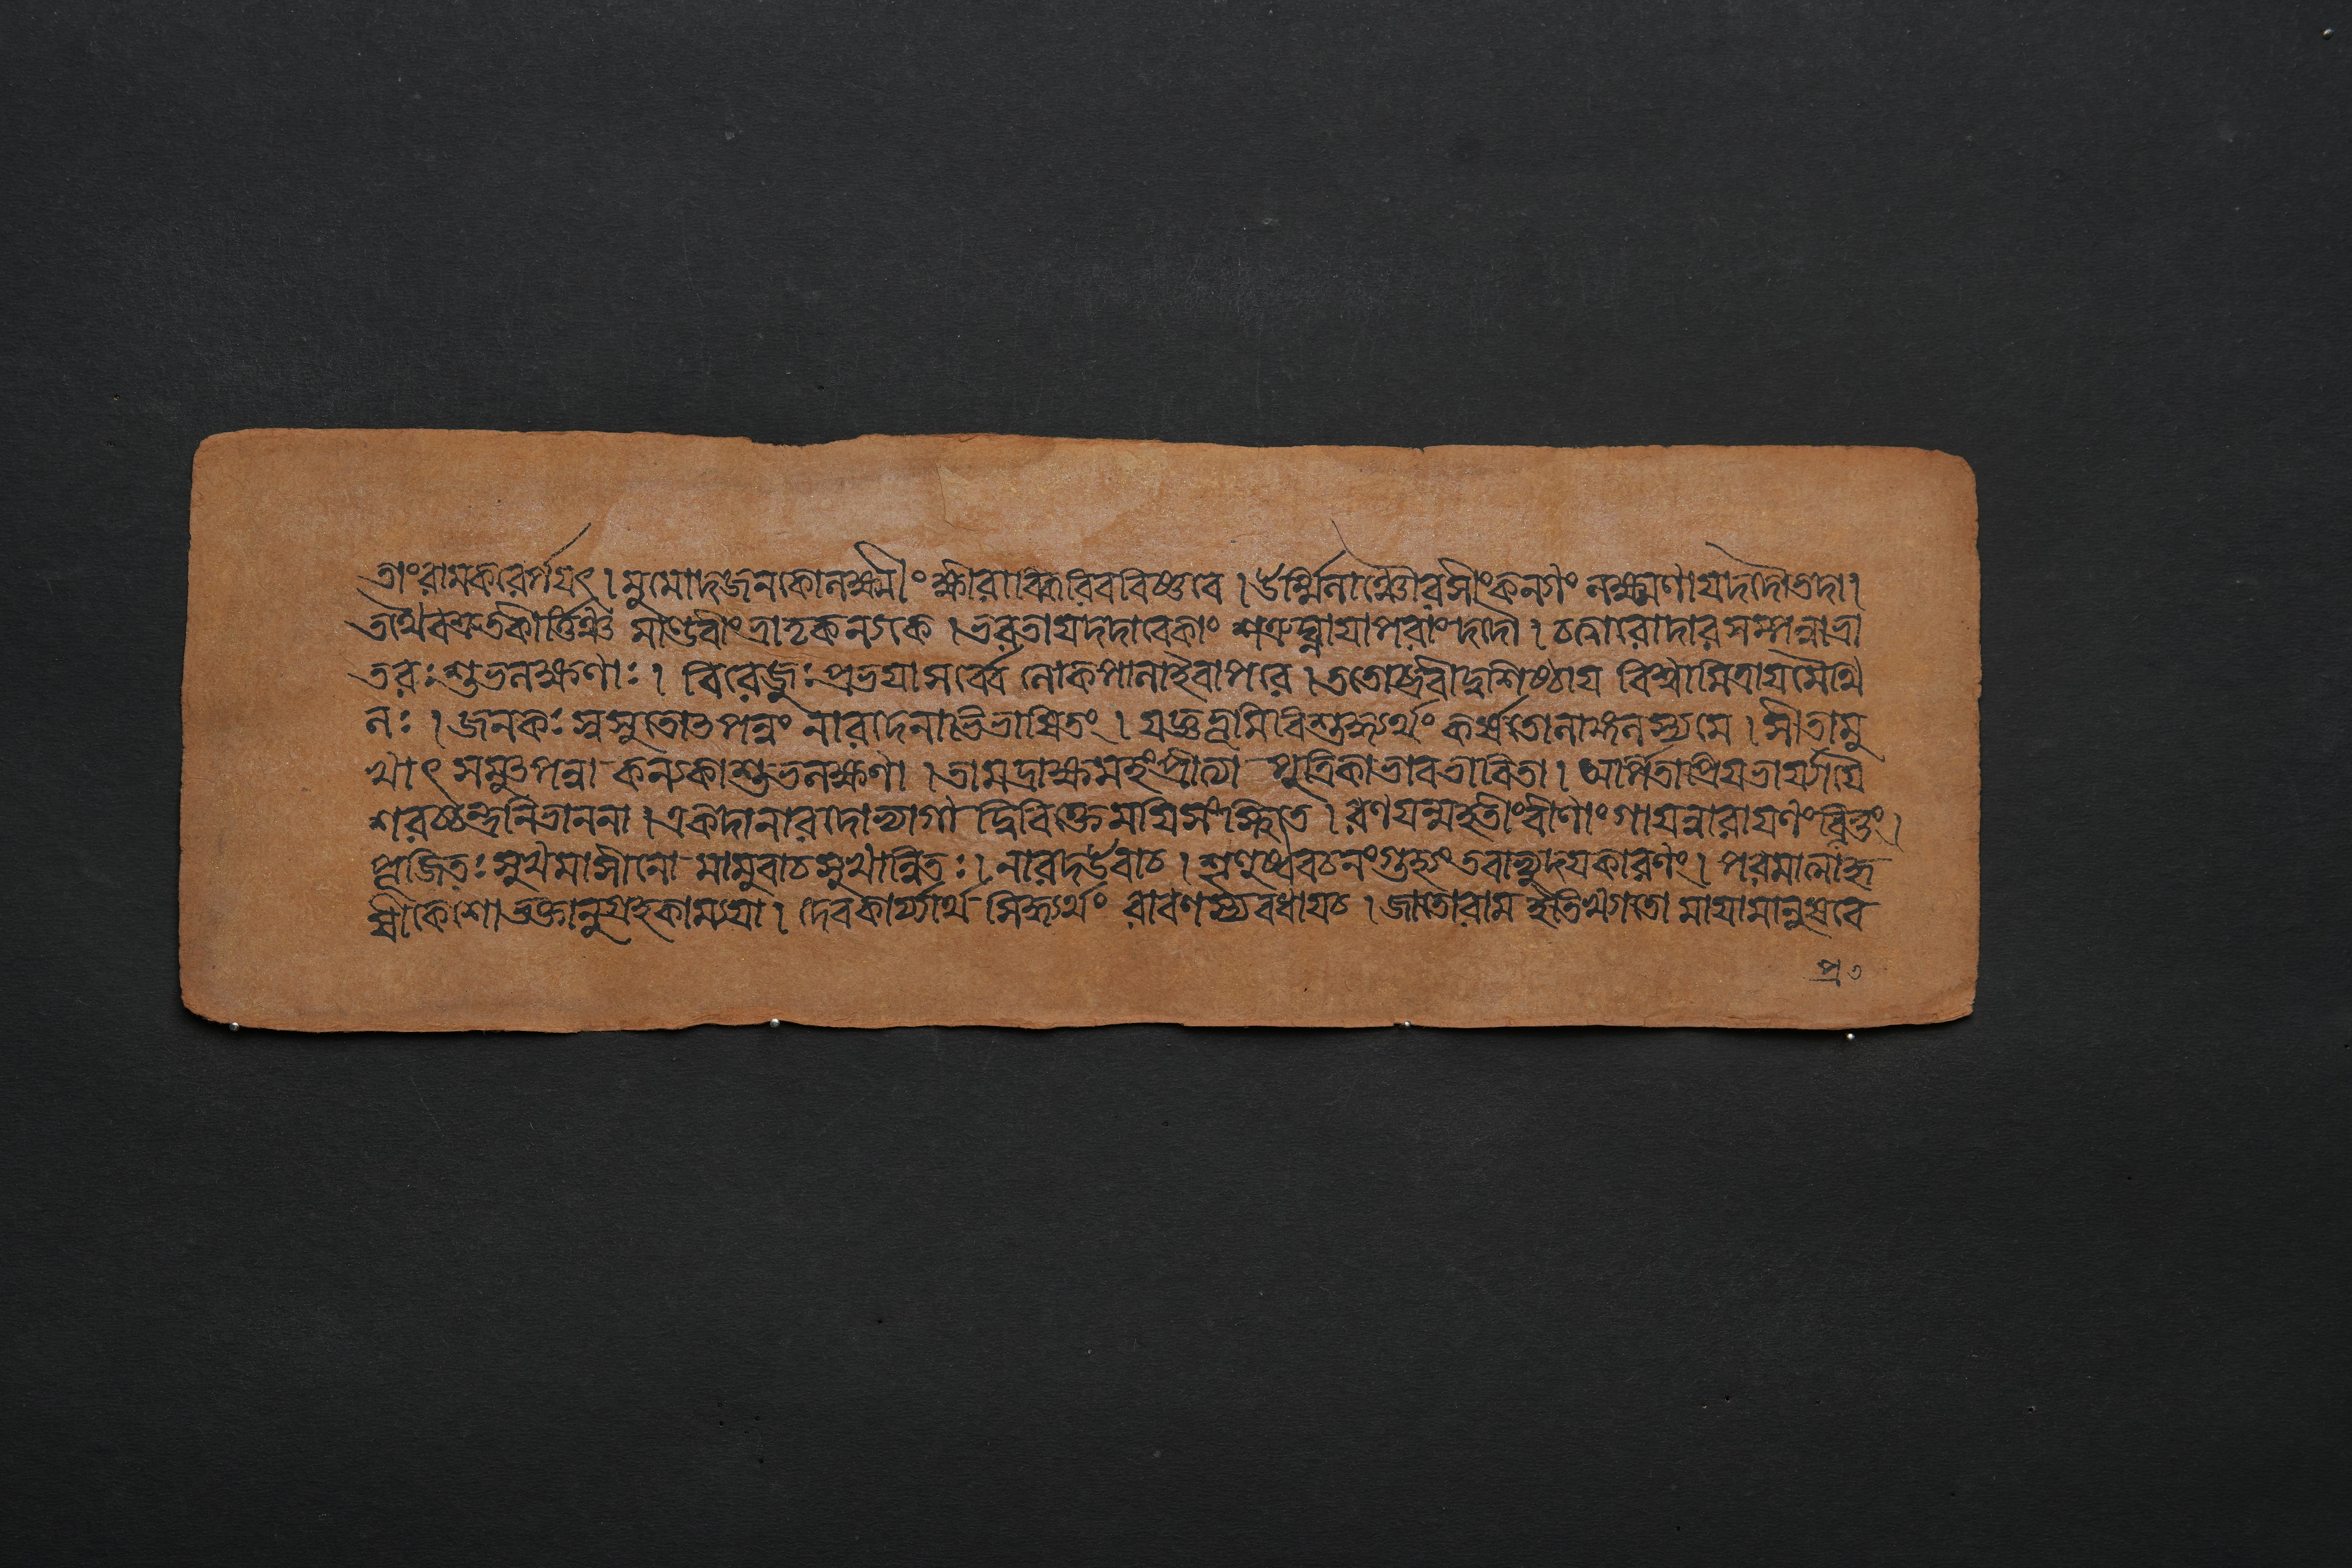 তাংরামকরের্পয়ৎ । মুমোদজনকোলক্ষ্মীং ক্ষীরাব্ধিরিববিষ্ণবে । ঊর্ম্মিলাঞ্চৌরসীংকন্যাং লক্ষ্মণায়দদৌতদা ।
তথৈবশ্রুতকীর্ত্তিঞ্চ মাণ্ডবীংভ্রাতৃকন্যকে । ভরতায়দদাবেকাং শত্রুঘ্নায়াপরাংদদৌ । চত্বারোদারসম্পন্নাভ্রা
তরঃশুভলক্ষণাঃ । বিরেজুঃপ্রভয়াসর্ব্বে লোকপালাইবাপরে । ততোব্রবীদ্বশিষ্ঠায় বিশ্বামিত্রায়মৈথি
লঃ । জনকঃস্বসুতোৎপন্নং নারদেনাভিভাষিতং । যজ্ঞভূমিবিশুদ্ধ্যর্থং কর্ষতোলাঙ্গলস্যমে । সীতামু
খাৎ সমুৎপন্না কন্যকাশুভলক্ষণা । তামদ্রাক্ষমহংপ্রীত্যা পুত্রিকাভাবভাবিতা । অর্পিতাপ্রিয়ভার্যায়ৈ
শরচ্চন্দ্রনিভাননা । একদানারদোভ্যাগাদ্বিবিক্তেময়িসংস্থিতে । রণয়ন্মহতীংবীণাং গায়ন্নারায়ণংবিভুং ।
পূজিতঃসুখমাসীনো মামুবাচসুখান্বিতঃ । নারদউবাচ । শৃণুষ্ববচনংগুহ্যং তবাভ্যুদয়কারণং । পরমাত্মাহৃ
ষীকেশোভক্তানুগ্রহকাম্যয়া । দেবকার্য্যার্থসিদ্ধ্যর্থং রাবণস্যবধায়চ । জাতোরামইতিখ্যাতো মায়ামানুষবে